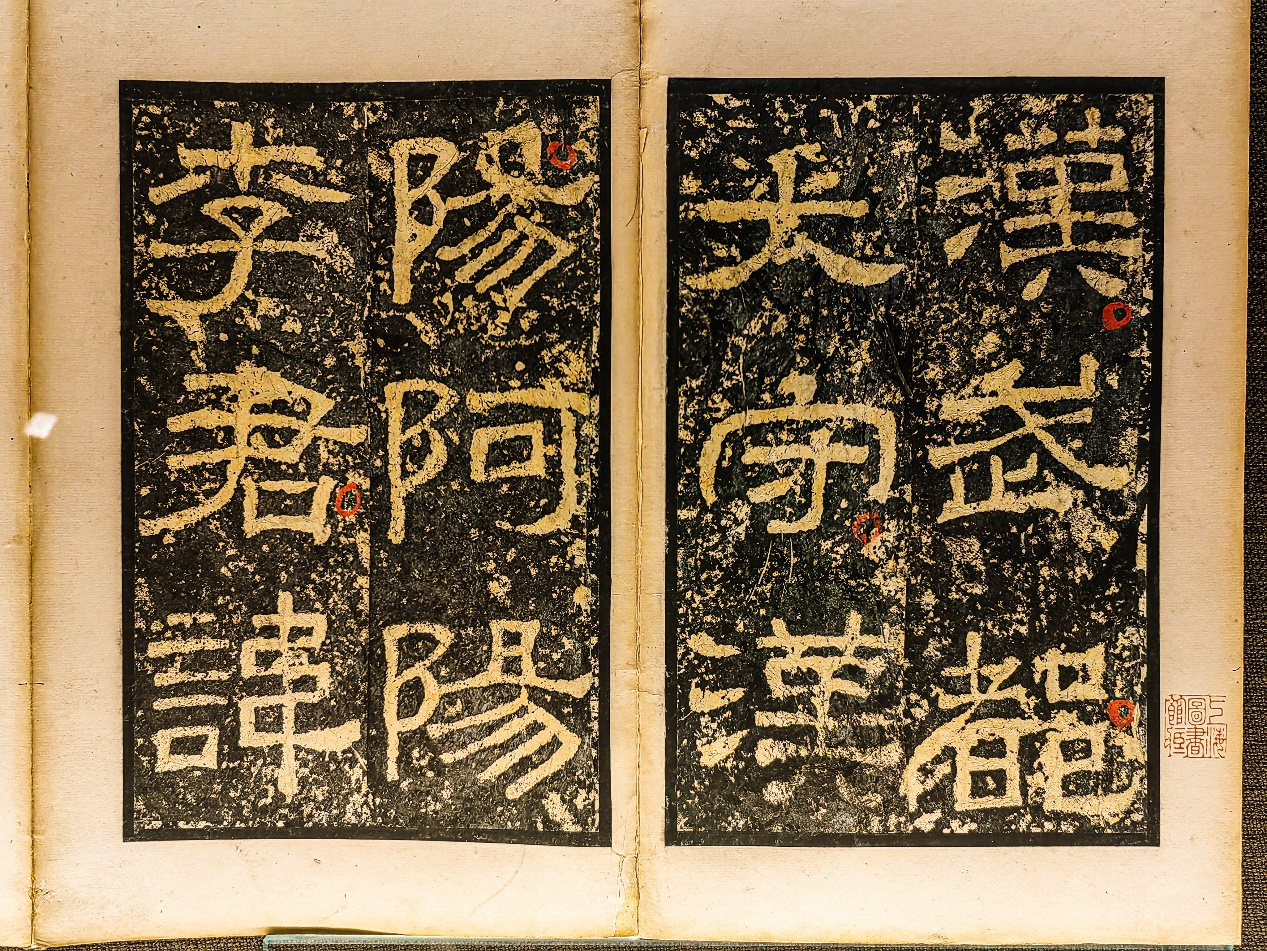 漢武都
大守漢
陽阿陽
李君諱
上海
圖書
館藏